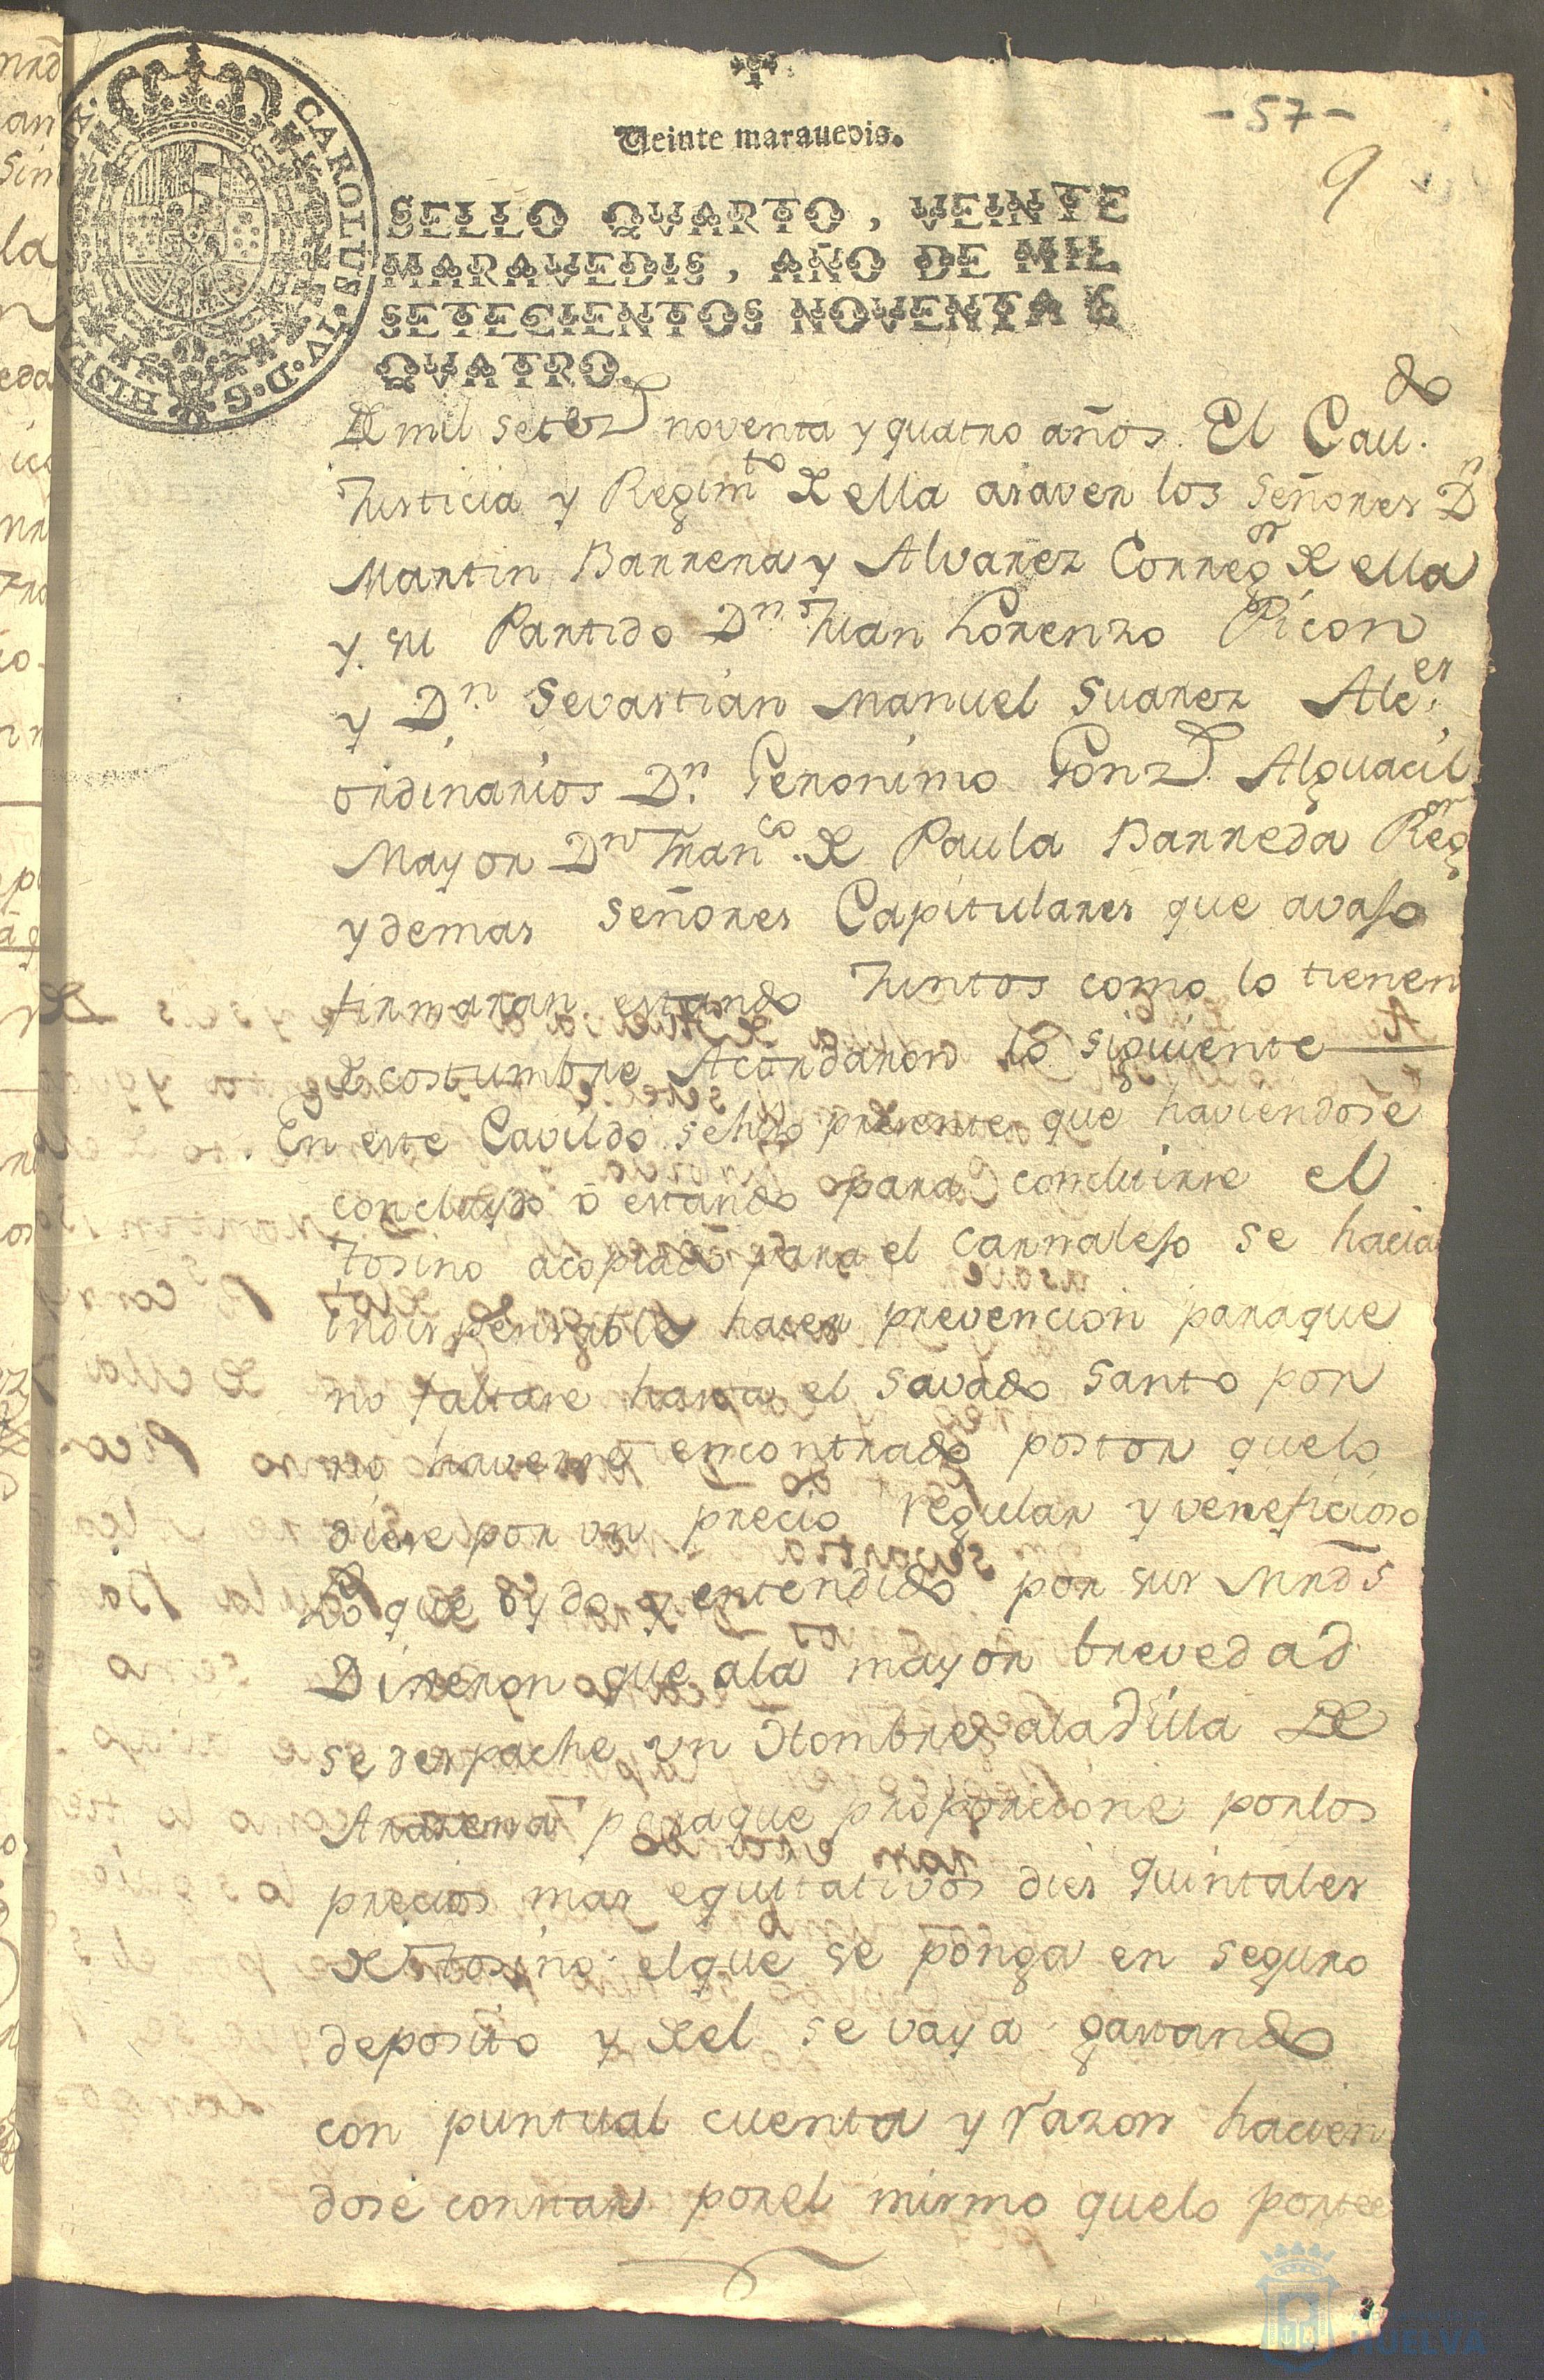 Veinte marauedis.
- 57 -
9
CAROLUS·IV·D·G·HISP
SELLO QVARTO, VEINTE
MARAVEDIS, AÑO DE MIL
SETECIENTOS NOVENTA Y
QVATRO.
De mil setez.s noventa y quatro años. El Cav.do
Justicia y Regim.to de ella asaver los Señores D.n
Martin Barrera y Alvarez Correg.or de ella
y su Partido D.n Juan Lorenzo Picon
y D.n Sevastian Manuel Suarez Alc.es
ordinarios D.n Geronimo Gonz.s Alguacil
Mayor D.n Fran.co de Paula Barreda Reg.or
y demas Señores Capitulares que avaso
firmaran estando Juntos como lo tienen
de costumbre Acordaron lo siguiente
En este Cavildo se hizo presente que haviendose
concluydo ó estando para concluirse el
tosino acopiado para el carnalejo se hacia
indispensable hacer prevencion paraque
no faltase hasta el Savado Santo por
no haverse encontrado postor quelo
diese por un precio regular y veneficioso
Lo que oydo y entendido por sus Mrds
Dixeron que ala mayor brevedad
se despache un Hombre ala Villa de
Arasena paraque proporcione porlos
precios mas equitativos dies quintales
de tosino elque se ponga en seguro
deposito y del se vaya gastando
con puntual cuenta y razon hacien
dose constar porel mismo quelo portee
HUELVA